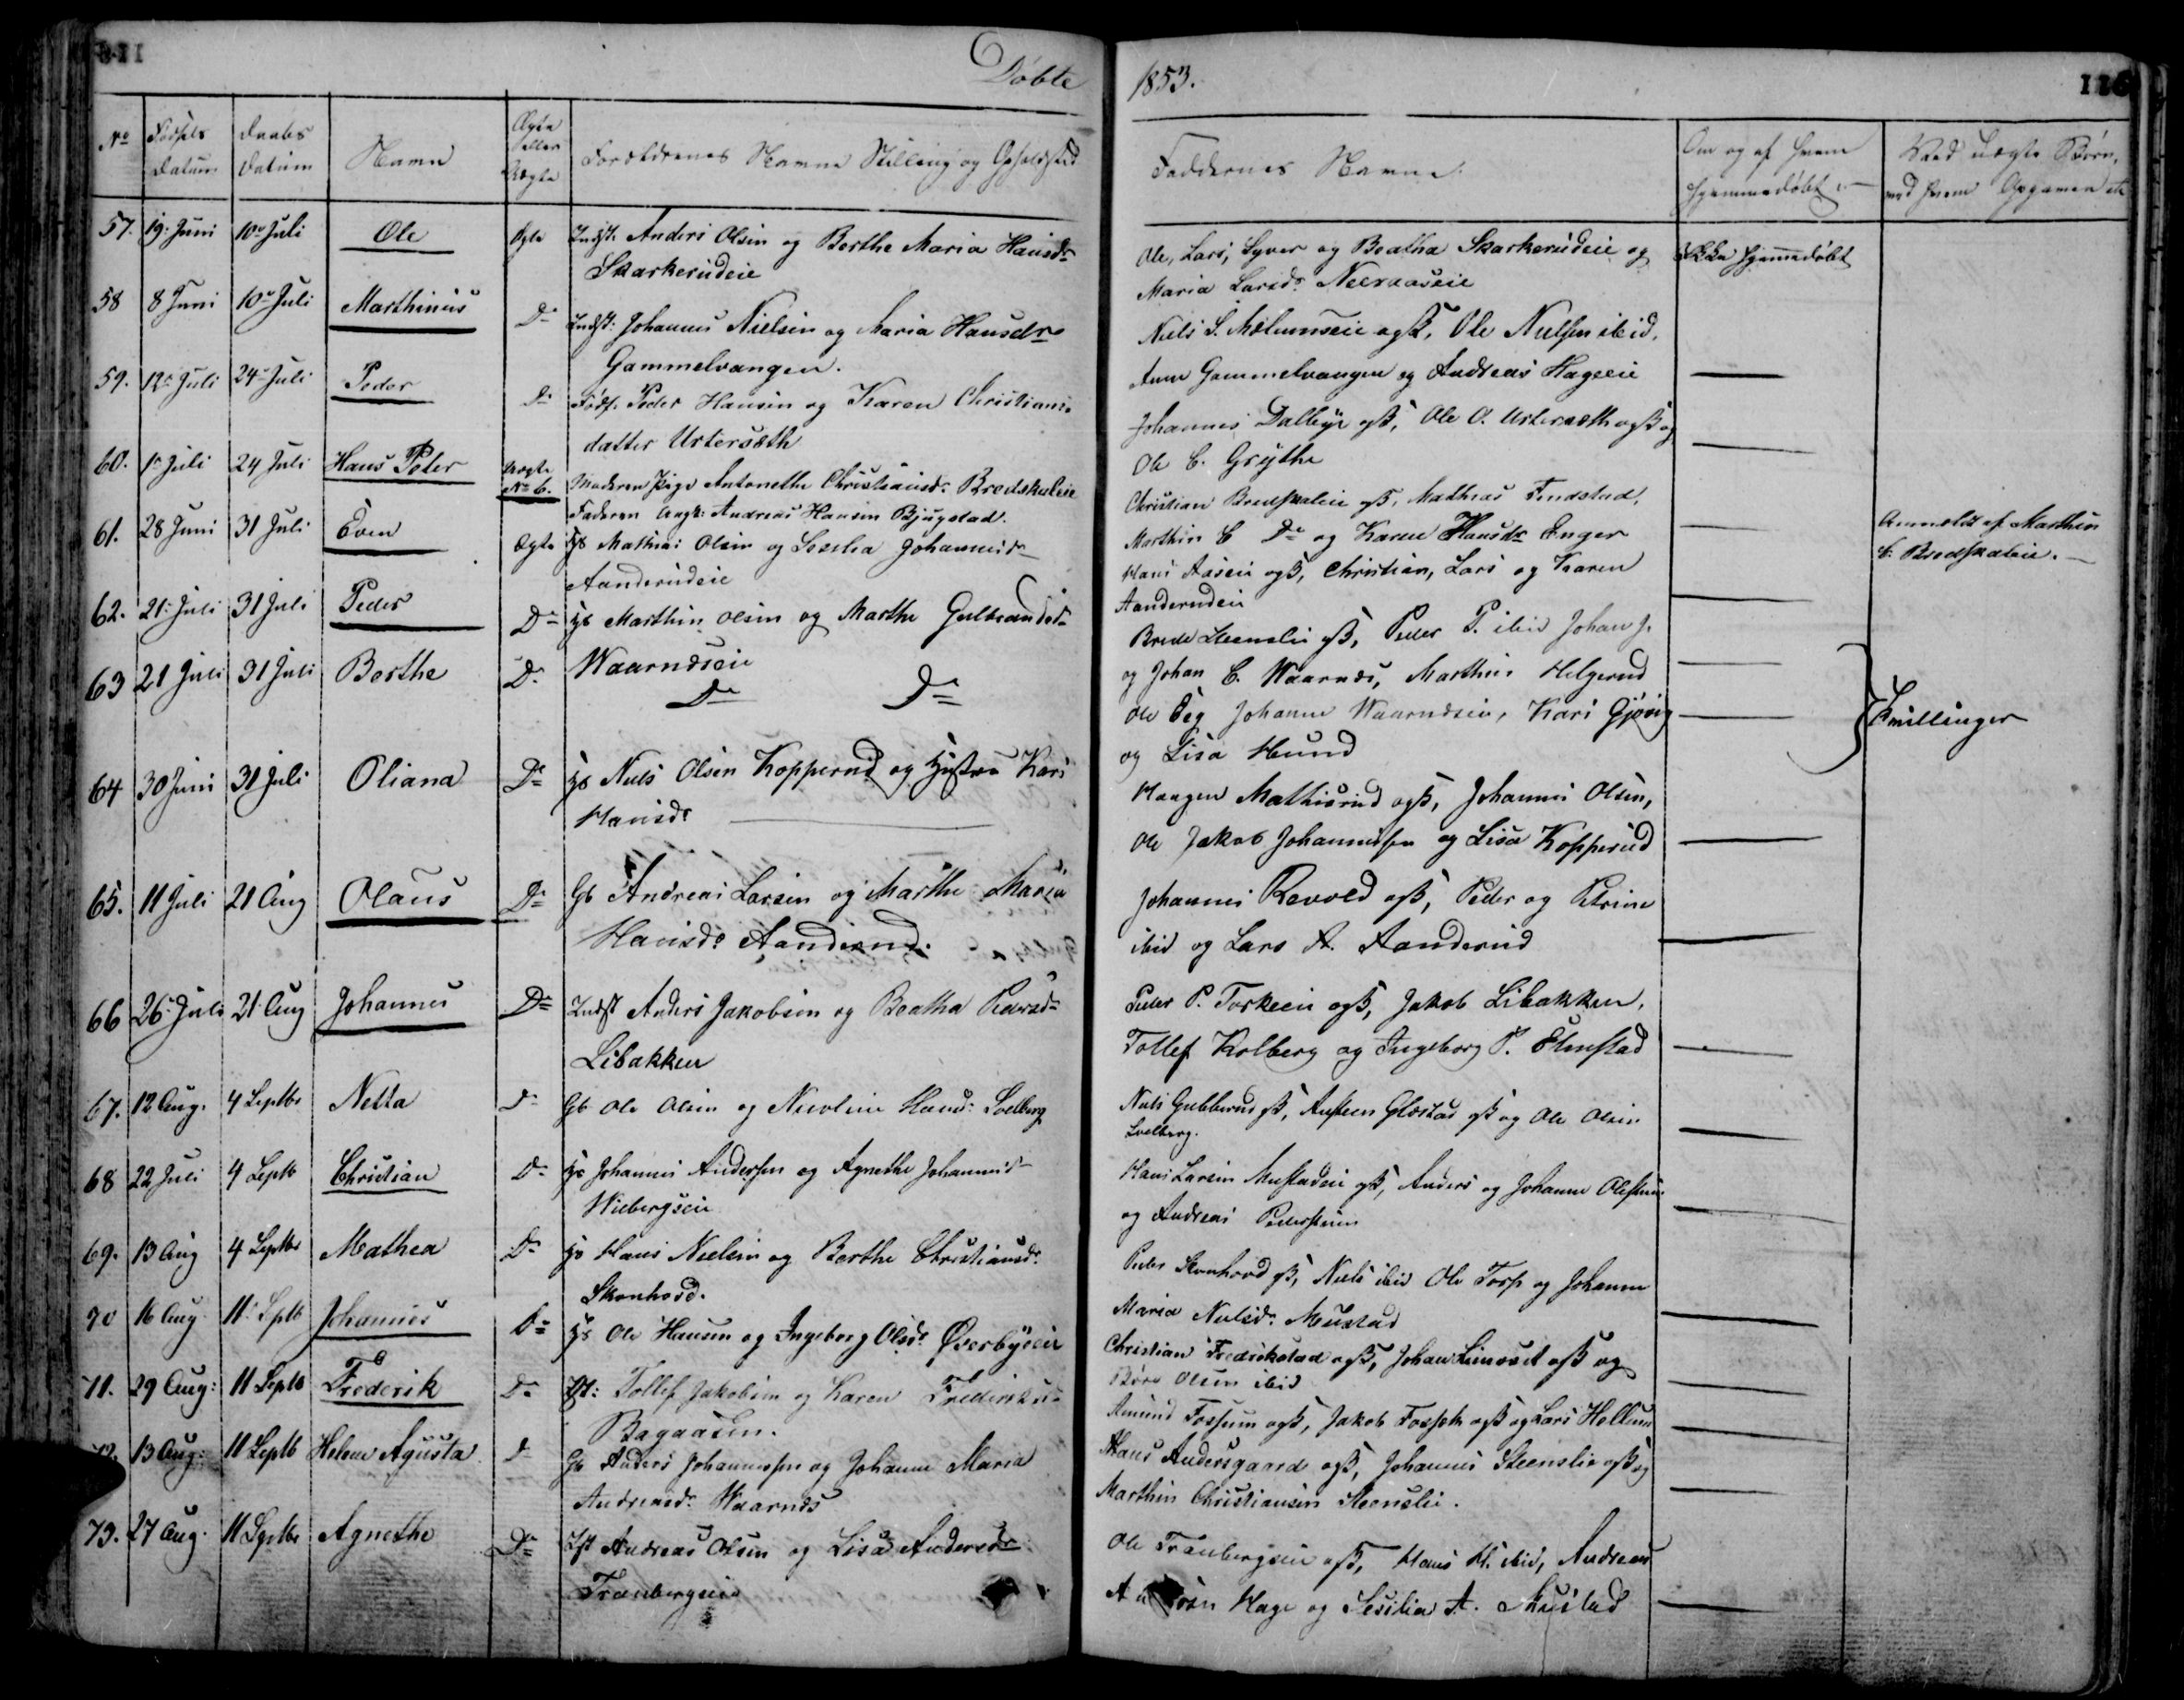 Döbte
1853.
116
No Födsels Datum Daabs Datum Navne Ægte eller Uægte Forældrenes Navne Stilling og Opholdsted
Faddernes Navne.
Om og af hvem hjemmedöbt
Ved uægte Börn, med hvem
57. 19. Juni 10 Juli Ole Ægte Indst. Anders Olsen og Berthe Maria Hansdr
Skarkerudeie
Ole, Lars, Syver og Beatha Skarkerudeie og
Maria Larsdr
Ikke hjemmedöbt
58 8 Juni 10 Juli Marthinus Do Indst: Johannes Nielsen og Maria Hansdr
Gammelvangen.
Niels S. ogst, Ole Nielsen ibid.
Anne Gammelvangen og Andreas Hageeie
59. 12 Juli 24 Juli Peder Do Peder Hansen og Karen Christians-
datter Ustersæth
Johannes Dalbye gst, Ole O. Ustersæth ogst og
Ole C. Grythe
60. 1 Juli 24 Juli Hans Peter Uægte No 6. Moderen Pige Antonethe Christiansdr Bredskaleie
Faderen Ungk: Andreas Hansen Bjugstad.
Christian Bredskaleie gst, Mathias Findstad,
Marthin C Do og Karen Hansdr Enger
Anmeldt af Marthin
C. Bredskaleie.
61. 28 Juni 31 Juli Even Ægte Hs Mathias Olsen og Sesilia Johannisdr
Aanderudeie
Hans Aaseie ogst, Christian, Lars og Karen
Aanderudeie
62. 21 Juli 31 Juli Peder Do Hs Marthin Olsen og Marthe Gulbrandsdr
Waarnæseie
Brede Steenslie gst, Peder P. ibid Johan J.
og Johan C. Waarnæs, Marthin Helgerud
63 21 Juli 31 Juli Berthe Do Do Do
Ole Johanne Waarnæseie, Kari Gjövig
og Lisa Hund
Tvillinger
64 30 Juni 31 Juli Oliana Do Hs Niels Olsen Kopperud og Hustru Kari
Hansdr
Haagen Mathisrud ogst, Johannes Olsen,
Ole Jakob Johannessen og Lisa Kopperud
65. 11 Juli 21 Aug Olaus Do Gb Andreas Larsen og Marthe Maria
Hansdr Aanderud.
Johannes Revold ogst, Peder og Petrine
ibid og Lars A. Aanderud
66 26 Juli 21 Aug Johannes Do Indst Anders Jakobsen og Beatha Pedersdr
Libakken
Peder P. Torkeeie ogst, Jakob Libakken,
Tollef Kolberg og Ingeborg P. Elmstad
67. 12 Aug. 4 Septbr Netta Do Gb Ole Olsen og Nicoline Hansdr Solberg
Niels Gubberud gst, Glæstad gst og Ole Olsen
Solberg.
68 22 Juli 4 Septb Christian Do Hs Johannes Andersen og Agnethe Johannisdr
Wiebergseie
Hans Larsen Mustadeie gst, Anders og Johanne
og Andreas
69. 13 Aug 4 Septbr Mathea Do Hs Hans Nielsen og Berthe Christiansdr
Skonhovd.
Peder Skonhovd gst, Niels ibid Ole Torp og Johanne
Maria Nielsdr Mustad
70 16 Aug 11 Septb Johannes Do Hs Ole Hansen og Ingeborg Olsdr Överbyeeie
Christian Fredrikstad ogst, Johan gst og
Olsen ibid
71. 29 Aug: 11 Septb Frederik Do Tollef Jakobsen og Karen Frederiksdr
Bagaasen.
Amund Fossum ogst, Jakob gst og Lars Hellum
72. 13 Aug: 11 Septb Helene Agusta Do Gb Anders Johannessen og Johanne Maria
Andreasdr Waarnæs
Hans Andersgaard ogst, Johannes Steenslie gst og
Marthin Christiansen Steenslie.
73. 27 Aug. 11 Septbr Agnethe Do Ist Andreas Olsen og Lisa Andersdr
Tranbergseie
Ole Tranbergseie gst, Hans H. ibid, Andreas
Hage og Sesilia A. Mustad